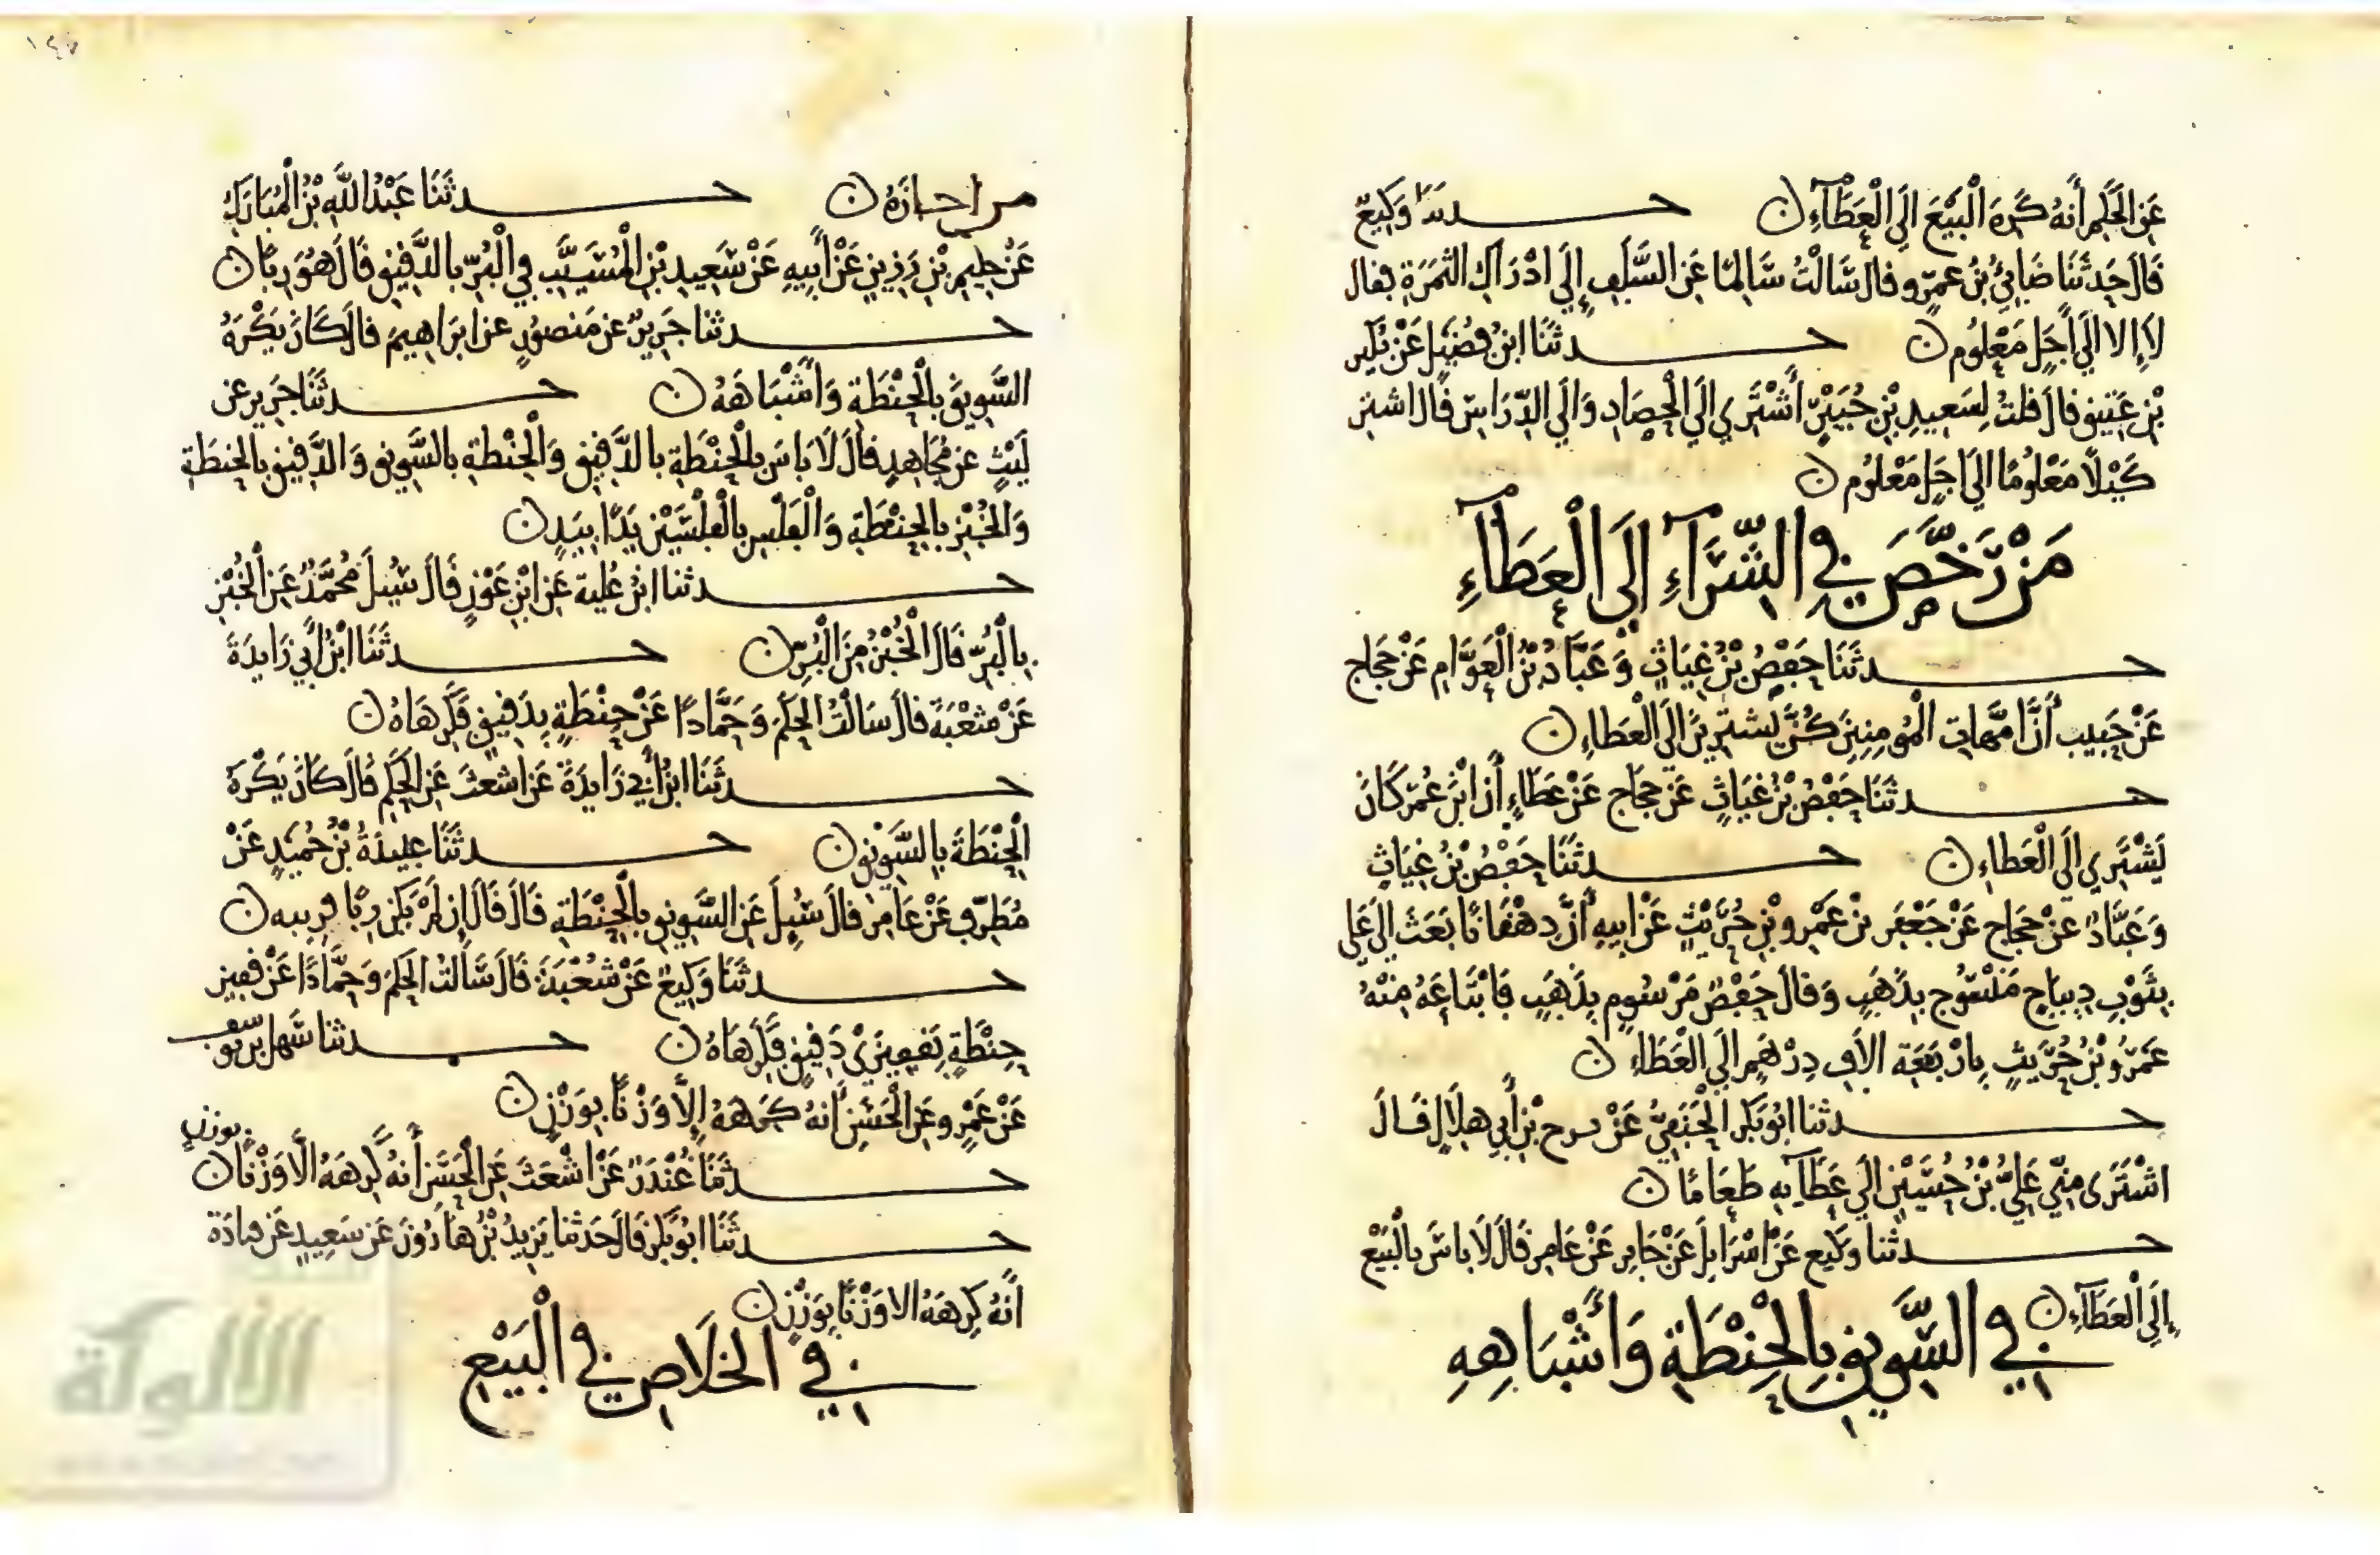 عَنِ الْحَكَمِ أَنَّهُ كَرِهَ الْبَيْعَ إِلَى الْعَطَآءِ ۝ حدثنا وَكِيعٌ
قَالَ حَدَّثَنَا ضَابِئُ بْنُ عَمْرٍو قال سَّالْتُ سَّالِمًا عَنِ السَّلَفِ إِلَى ادْرَاكِ الثَّمَرَةِ فقال
لَا إِلا الَى أَجَلٍ مَعْلُومٍ ۝ حدثَنَا ابْنُ فُضَيْلٍ عَنْ بُكَيْرِ
بْنِ عَتِيقٍ قال قلتُ لِسَعِيدِ بْنِ جُبَيْرٍ أَشْتَرِي الَى الْحِصَادِ وَالَى الدِّرَاسِ قال اشترِ
كَيْلًا مَعْلُومًا الَى اجَلٍ مَعْلُومٍ ۝
مَنْ رَخَّصَ فِي الشِّرَآءِ إِلَى الْعَطَآءِ
حدثَنَا حَفْصُ بْنُ غِيَاثٍ وَعَبَّادُ بْنُ الْعَوَّامِ عَنْ حَجَاجِ
عَنْ حَبِيبٍ أَنَّ امَّهَاتِ الْمُومِنِينَ كُنَّ يَشْتَرِينَ الَى الْعَطَاءِ ۝
حدثَنَا حَفْصُ بْنُ غِيَاثٍ عَنْ حَجَاجٍ عَنْ عَطَاءٍ أَن ابْنَ عُمَرَ كَانَ
يَشْتَرِي الَى الْعَطَاءِ ۝ حدثَنَا حَفْصُ بْنُ غِيَاثٍ
وَعَبَّادٌ عَنْ حَجَاجٍ عَنْ جَعْفَرِ بْنِ عَمْرِو بْنِ حُرَيْثٍ عَنْ ابِيهِ أَنَّ دِهْقَانًا بَعَثَ الَى عَلِي
بِثَوْبِ دِيبَاجٍ مَنْسُوجٍ بِذَهَبٍ وَقَالَ حَفْصٌ مَرْسُومٍ بِذَهَبٍ فَابْتَاعَهُ مِنْهُ
عَمْرُو بْنُ حُرَيْثٍ بِارْبَعَةِ الافِ دِرْهَمٍ الَى الْعَطَاءِ ۝
حدثنا ابُو بَكْرٍ الْحَنَفِيُّ عَنْ بْنِ أَبِي هِلَالٍ قَالَ
اشْتَرَى مِنِّي عَلِيُّ بْنُ حُسَيْنٍ الَى عَطَآيِهِ طَعَامًا ۝
حدثنا وكيع عَنْ اسْرَايِلَ عَنْ جَابِرٍ عَنْ عَامِرٍ قَالَ لَا باسَ بِالْبَيْعِ
إِلَى الْعَطَآءِ ۝
فِي السَّوِيقِ بِالْحِنْطَةِ وَأَشْبَاهِهِ
حدثَنَا عَبْدُ اللَّهِ بْنُ الْمُبَارَكِ
عَنْ حَلِيمِ بْنِ رَزِينٍ عَنْ أَبِيهِ عَنْ سَعِيدِ بْنِ الْمُسَيَّبِ فِي الْبُرِّ بِالدَّقِيقِ قَالَ هُوَ رِبًا ۝
حدثنا جَرِيرٌ عن مَنصُورٍ عن ابرَاهِيمَ قالَ كَانَ يَكْرَهُ
السَّوِيقَ بِالْحِنْطَةِ وَأَشْبَاهَهُ ۝ حدثَنَا جَرِير عن
لَيْثٍ عن مُجَاهِدٍ قالَ لَا بَاسَ بِالْحِنْطَةِ بِالدَّقِيقِ وَالْحِنْطَةِ بِالسَّوِيقِ وَالدَّقِيقِ بِالْحِنطَةِ
وَالْخُبْزِ بِالْحِنْطَةِ وَالْفَلْسِ بِالْفَلْسَيْنِ يَدًا بِيَدٍ ۝
حدثنا ابْنُ عُلَيَّةَ عَنِ ابْنِ عَوْنٍ قَالَ سُيِلَ مُحَمَّدٌ عَنِ الْخُبْزِ
بِالْبُرِّ قَالَ الْخُبْزُ مِنَ الْبُرِّ ۝ حدثَنَا ابْنُ أَبِي زَايِدَةَ
عَنْ شعْبَةَ قالَ سَالْتُ الْحَكَمَ وَحَمَّادًا عَنْ حِنْطَةٍ بِدَقِيقٍ فَكَرِهَاهُ ۝
حدثَنَا ابْنُ أَبِي زَايِدَةَ عَنِ اشْعَثَ عَنِ الْحَكَمِ قَالَ كَانَ يَكْرَهُ
الْحِنْطَةَ بِالسَّوِيقِ ۝ حدثَنَا عَبِيدَةُ بْنُ حُمَيْدٍ عَنْ
مُطَرِّفٍ عَنْ عَامِرٍ قالَ سُيِلَ عَنِ السَّوِيقِ بِالْحِنْطَةِ قَالَ قَالَ إِن لَمْ يَكُنْ رِبًا فَرِيبه ۝
حدثَنَا وَكِيعٌ عَنْ شُعْبَةَ قَالَ سَّأَلتُ الْحَكَمَ وَحَمَّادًا عَنْ قَفِيزِ
حِنْطَةٍ بِقَفِيزَيْ دَقِيقٍ فَكَرِهَاهُ ۝ حدثنا سَهل بن يوسف
عَنْ عَمْرٍو عَنِ الْحَسَنِ أَنَّهُ كَرِهَهُ إِلَّا وَزْنًا بِوَزْنٍ ۝
حدثَنَا غُنْدَرٌ عَنْ اشْعَثَ عَنِ الْحَسَنِ أَنهُ كَرِهَهُ الَّا وَزْنًا بوزنٍ ۝
حدثَنَا ابُو بَكْرٍ قالَ حَدَثنَا يَزِيدُ بْنُ هَارُونَ عَن سَعِيدٍ عَن قتادَة
أَنهُ كَرِهَهُ الا وَزْنًا بِوَزْنٍ ۝
فِي الخَلَاصِ فِي الْبَيْعِ
الألوكة